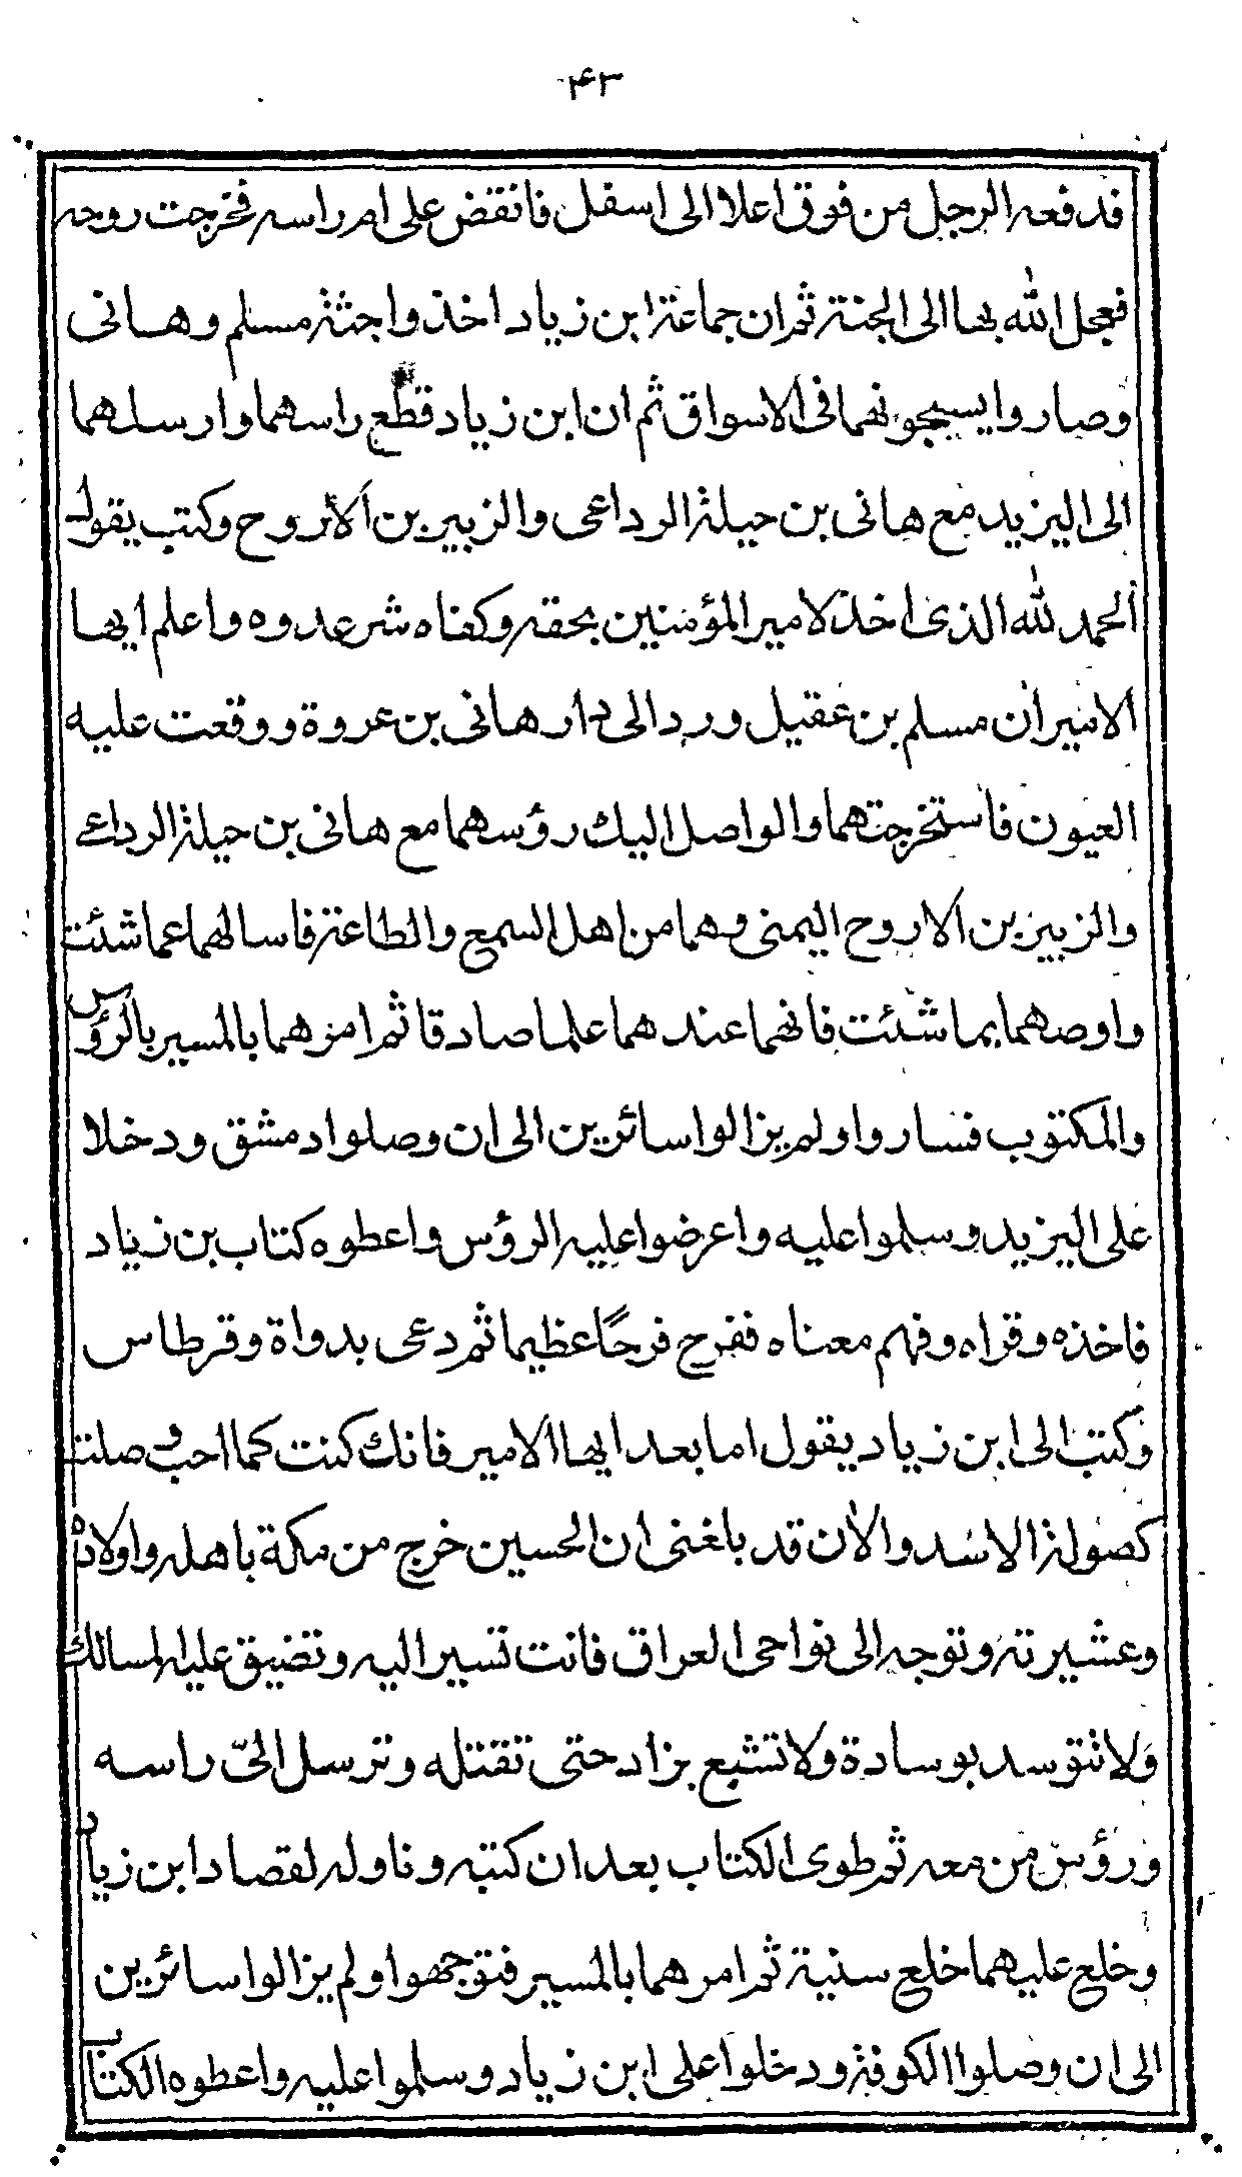 ۴۳
فدفعه الرجل من فوق اعلا الى اسفل فانقض على ام راسه فخرجت روحه
فعجل الله بها الى الجنة ثم ان جماعة ابن زياد اخذوا جثة مسلم وهانى
وصاروا يسحبونهما فى الاسواق ثم ان ابن زياد قطع راسهما وارسلهما
الى اليزيد مع هانى بن حيلة الرداعى والزبير بن الاروح وكتب يقول
الحمد لله الذى اخذ لامير المؤمنين بحقه وكفاه شر عدوه واعلم ايها
الامير ان مسلم بن عقيل ورد الى دار هانى بن عروة ووقعت عليه
العيون فاستخرجتهما والواصل اليك رؤسهما مع هانى بن حيلة الرداعى
والزبير بن الاروح اليمنى وهما من اهل السمع والطاعة فاسالهما عما شئت
واوصهما بما شئت فانهما عندهما علما صادقا ثم امرهما بالمسير بالرؤس
والمكتوب فساروا ولم يزالوا سائرين الى ان وصلوا دمشق ودخلا
على اليزيد وسلموا عليه واعرضوا عليه الرؤس واعطوه كتاب بن زياد
فاخذه وقراه وفهم معناه ففرح فرحًا عظيما ثم دعى بدواة وقرطاس
وكتب الى ابن زياد يقول اما بعد ايها الامير فانك كنت كما احب وصلت
كصولة الاسد والان قد بلغنى ان الحسين خرج من مكة باهله واولاده
وعشيرته وتوجه الى نواحى العراق فانت تسير اليه وتضيق عليه المسالك
ولا تتوسد بوسادة ولا تشبع بزاد حتى تقتله وترسل الىّ راسه
ورؤس من معه ثم طوى الكتاب بعد ان كتبه وناوله لقصاد ابن زياد
وخلع عليهما خلع سنية ثم امرهما بالمسير فتوجهوا ولم يزالوا سائرين
الى ان وصلوا الكوفة ودخلوا على ابن زياد وسلموا عليه واعطوه الكتاب